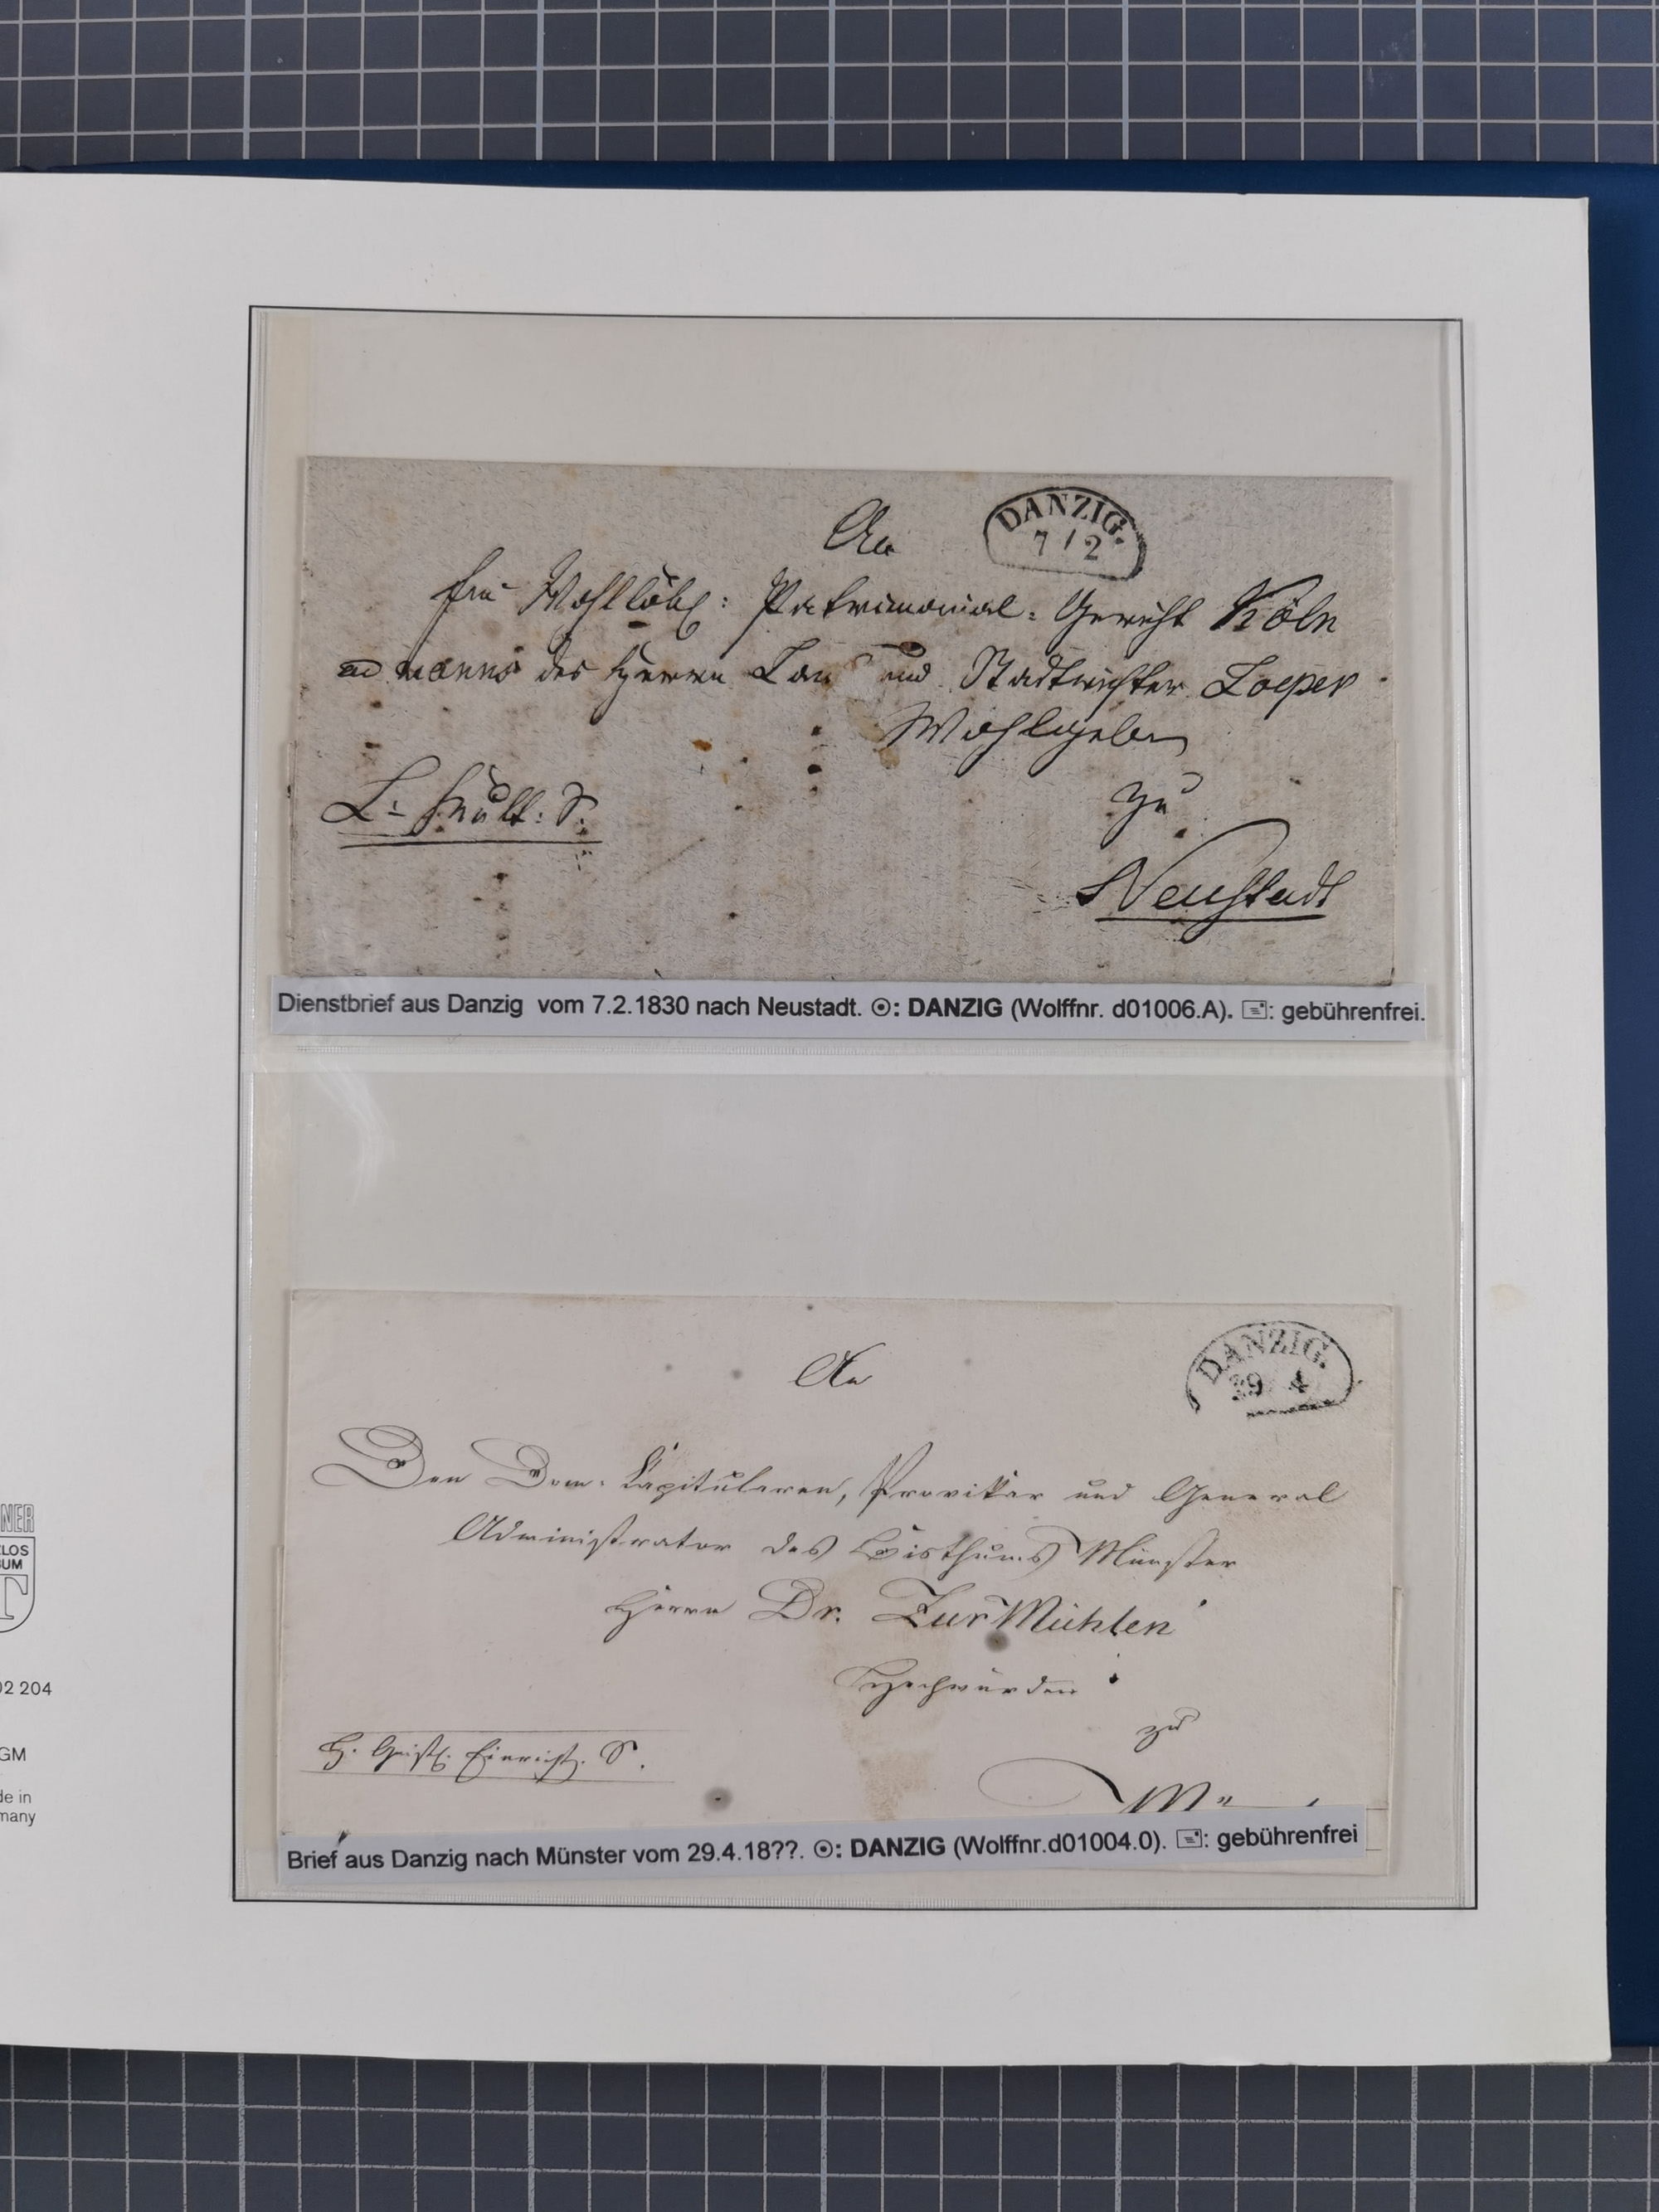 An
DANZIG.
7 / 2
Ein Wohllöbl: Patrimonial-Gericht Köln
ad manus des Herrn Land und Stadtrichter Loeper
Wohlgeboren
zu
Neustadt
Dienstbrief aus Danzig vom 7.2.1830 nach Neustadt. ☉: DANZIG (Wolffnr. d01006.A). 🖃: gebührenfrei.
An
DANZIG.
29 4
Den Dom-Kapitularen, Provikar und General
Administrator des Bisthums Münster
Herrn Dr. Zur Mühlen
Hochwürden
zu
H. Geistl. Einricht. S.
Brief aus Danzig nach Münster vom 29.4.18??. ☉: DANZIG (Wolffnr.d01004.0). 🖃: gebührenfrei
NER
LOS
UM
T
02 204
GM
de in
many